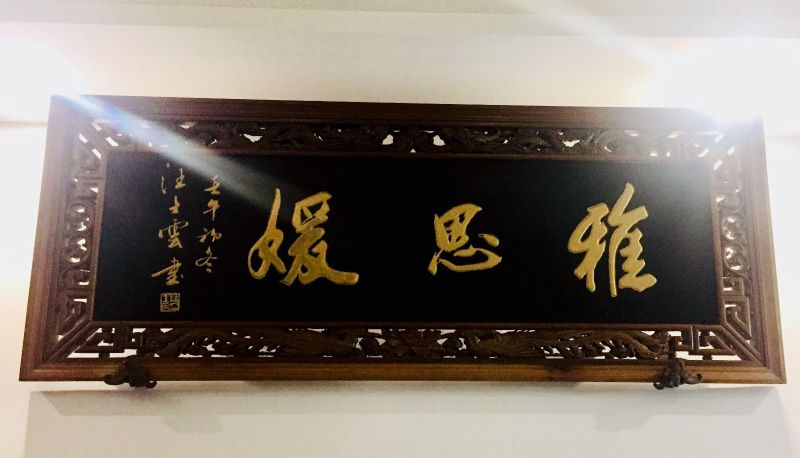 雅思媛
壬午初冬
汪士雲書